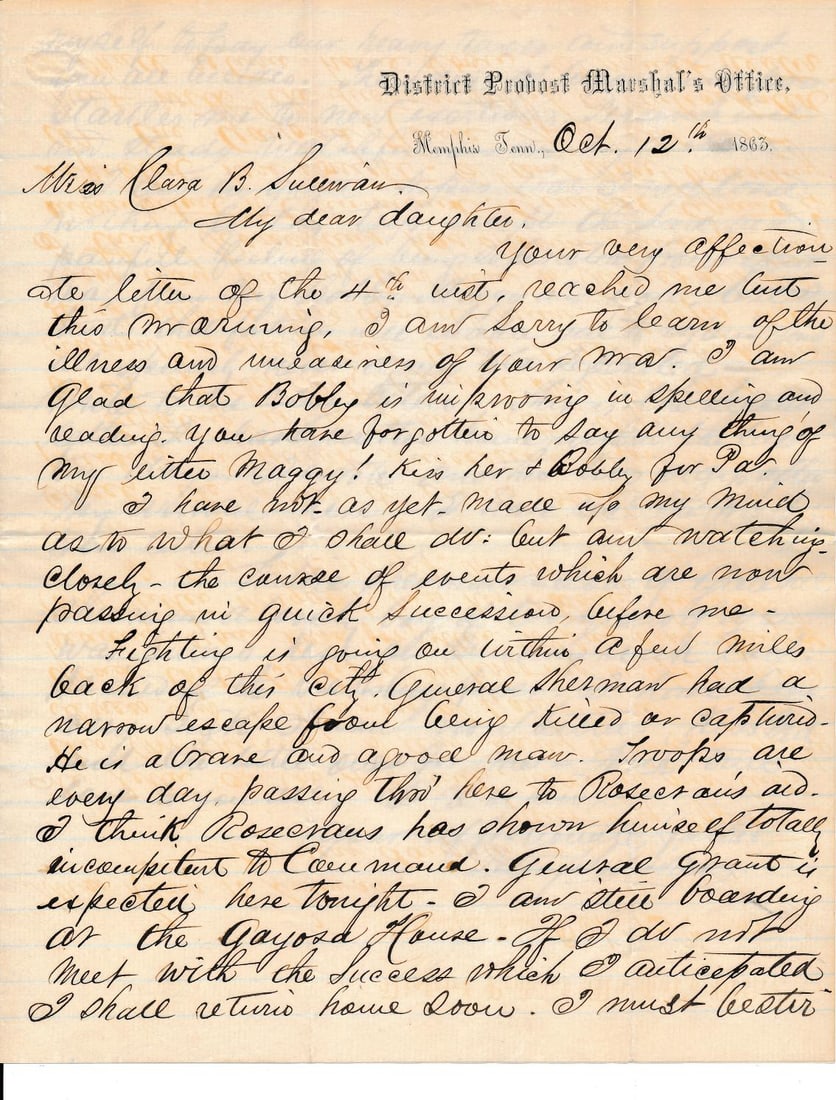 District Provost Marshal's Office,
Memphis Tenn., Oct. 12th 1863.
Miss Clara B. Sullivan.
My dear daughter.
Your very affection-
ate letter of the 4th inst, reached me but
this morning, I am sorry to learn of the
illness and uneasiness of your Ma. I am
Glad that Bobby is improving in spelling and
reading. You have forgotten to say any thing of
my little Maggy! Kiss her & Bobby for Pa.
I have not as yet made up my mind
as to what I shall do: but am watching
closely - the course of events which are now
passing in quick succession, before me -
Fighting is going on within a few miles
back of this city. General Sherman had a
narrow escape from being killed or captured-
He is a brave and a good man. Troops are
every day, passing thro' here to Rosecran's aid.
I think Rosecrans has shown himself totally
incompetent to Command. General Grant is
expected here tonight - I am still boarding
at the Gayosa House - If I do not
meet with the success which I anticipated
I shall return home soon. I must bestir